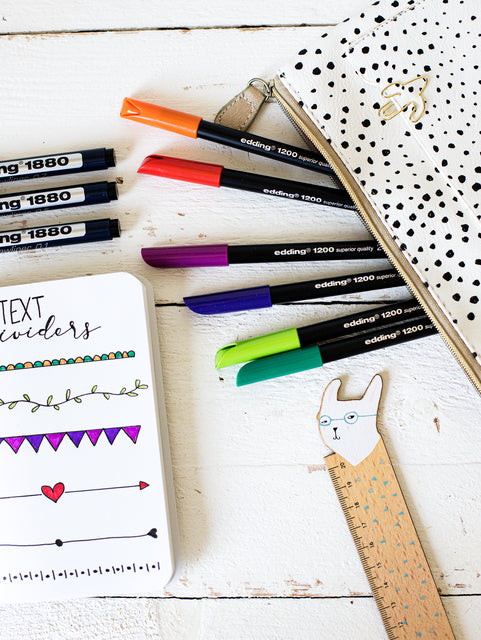 edding® 1200 superior quality
edding® 1200 superior quality
ng® 1880
ng® 1880
ng® 1880
edding® 1200 superior quality
edding® 1200 superior quality
edding® 1200 superior quality
edding® 1200 superior quality
TEXT
ividers